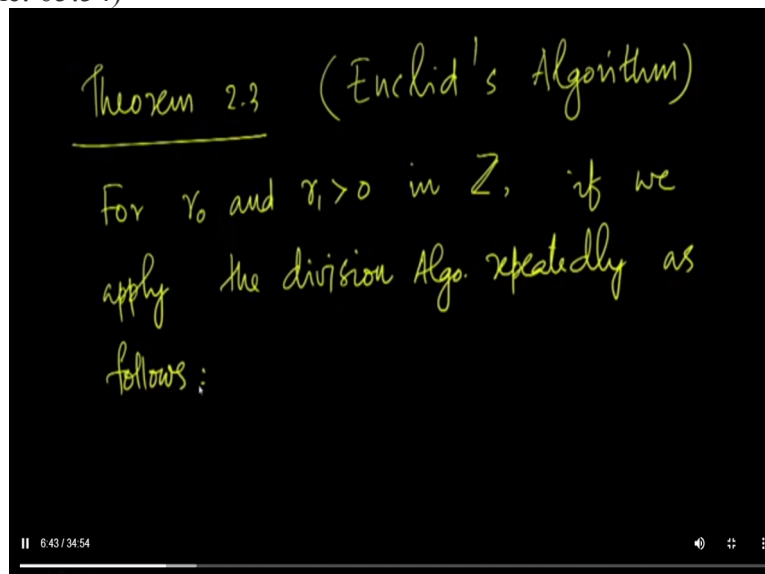 Theorem 2.3 (Euclid's Algorithm)
For r₀ and r₁>0 in Z, if we
apply the division Algo. repeatedly as
follows:
6:43 / 34:54